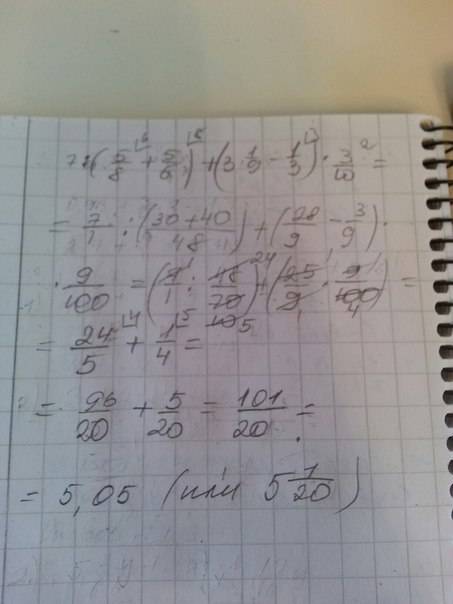 7 : (5/8 + 5/6) + (3 1/9 - 1/3) · 3/10 ² =
= 7/1 : (30+40/48) + (28/9 - 3/9) ·
· 9/100 = (7/1 · 48/70) + (25/9 · 9/100) =
= 24/5 + 1/4 =
= 96/20 + 5/20 = 101/20 =
= 5,05 (или 5 1/20)